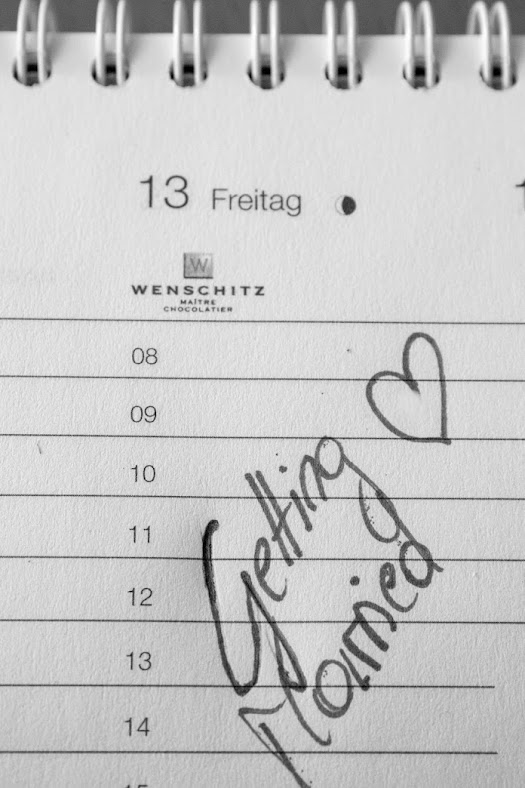 13 Freitag
W
WENSCHITZ
MAÎTRE
CHOCOLATIER
08
09
10
11
12
13
14
Getting
Married